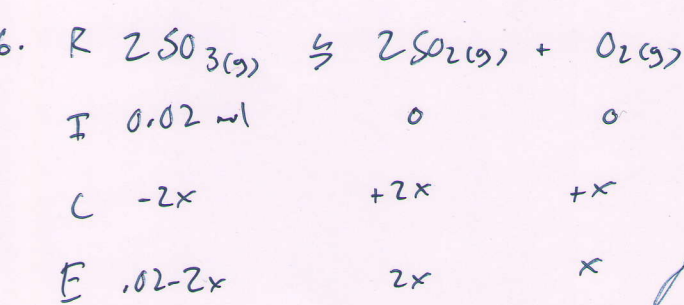 6. R 2SO3(g) ⇆ 2SO2(g) + O2(g)
I 0.02 mol 0 0
C -2x +2x +x
E .02-2x 2x x